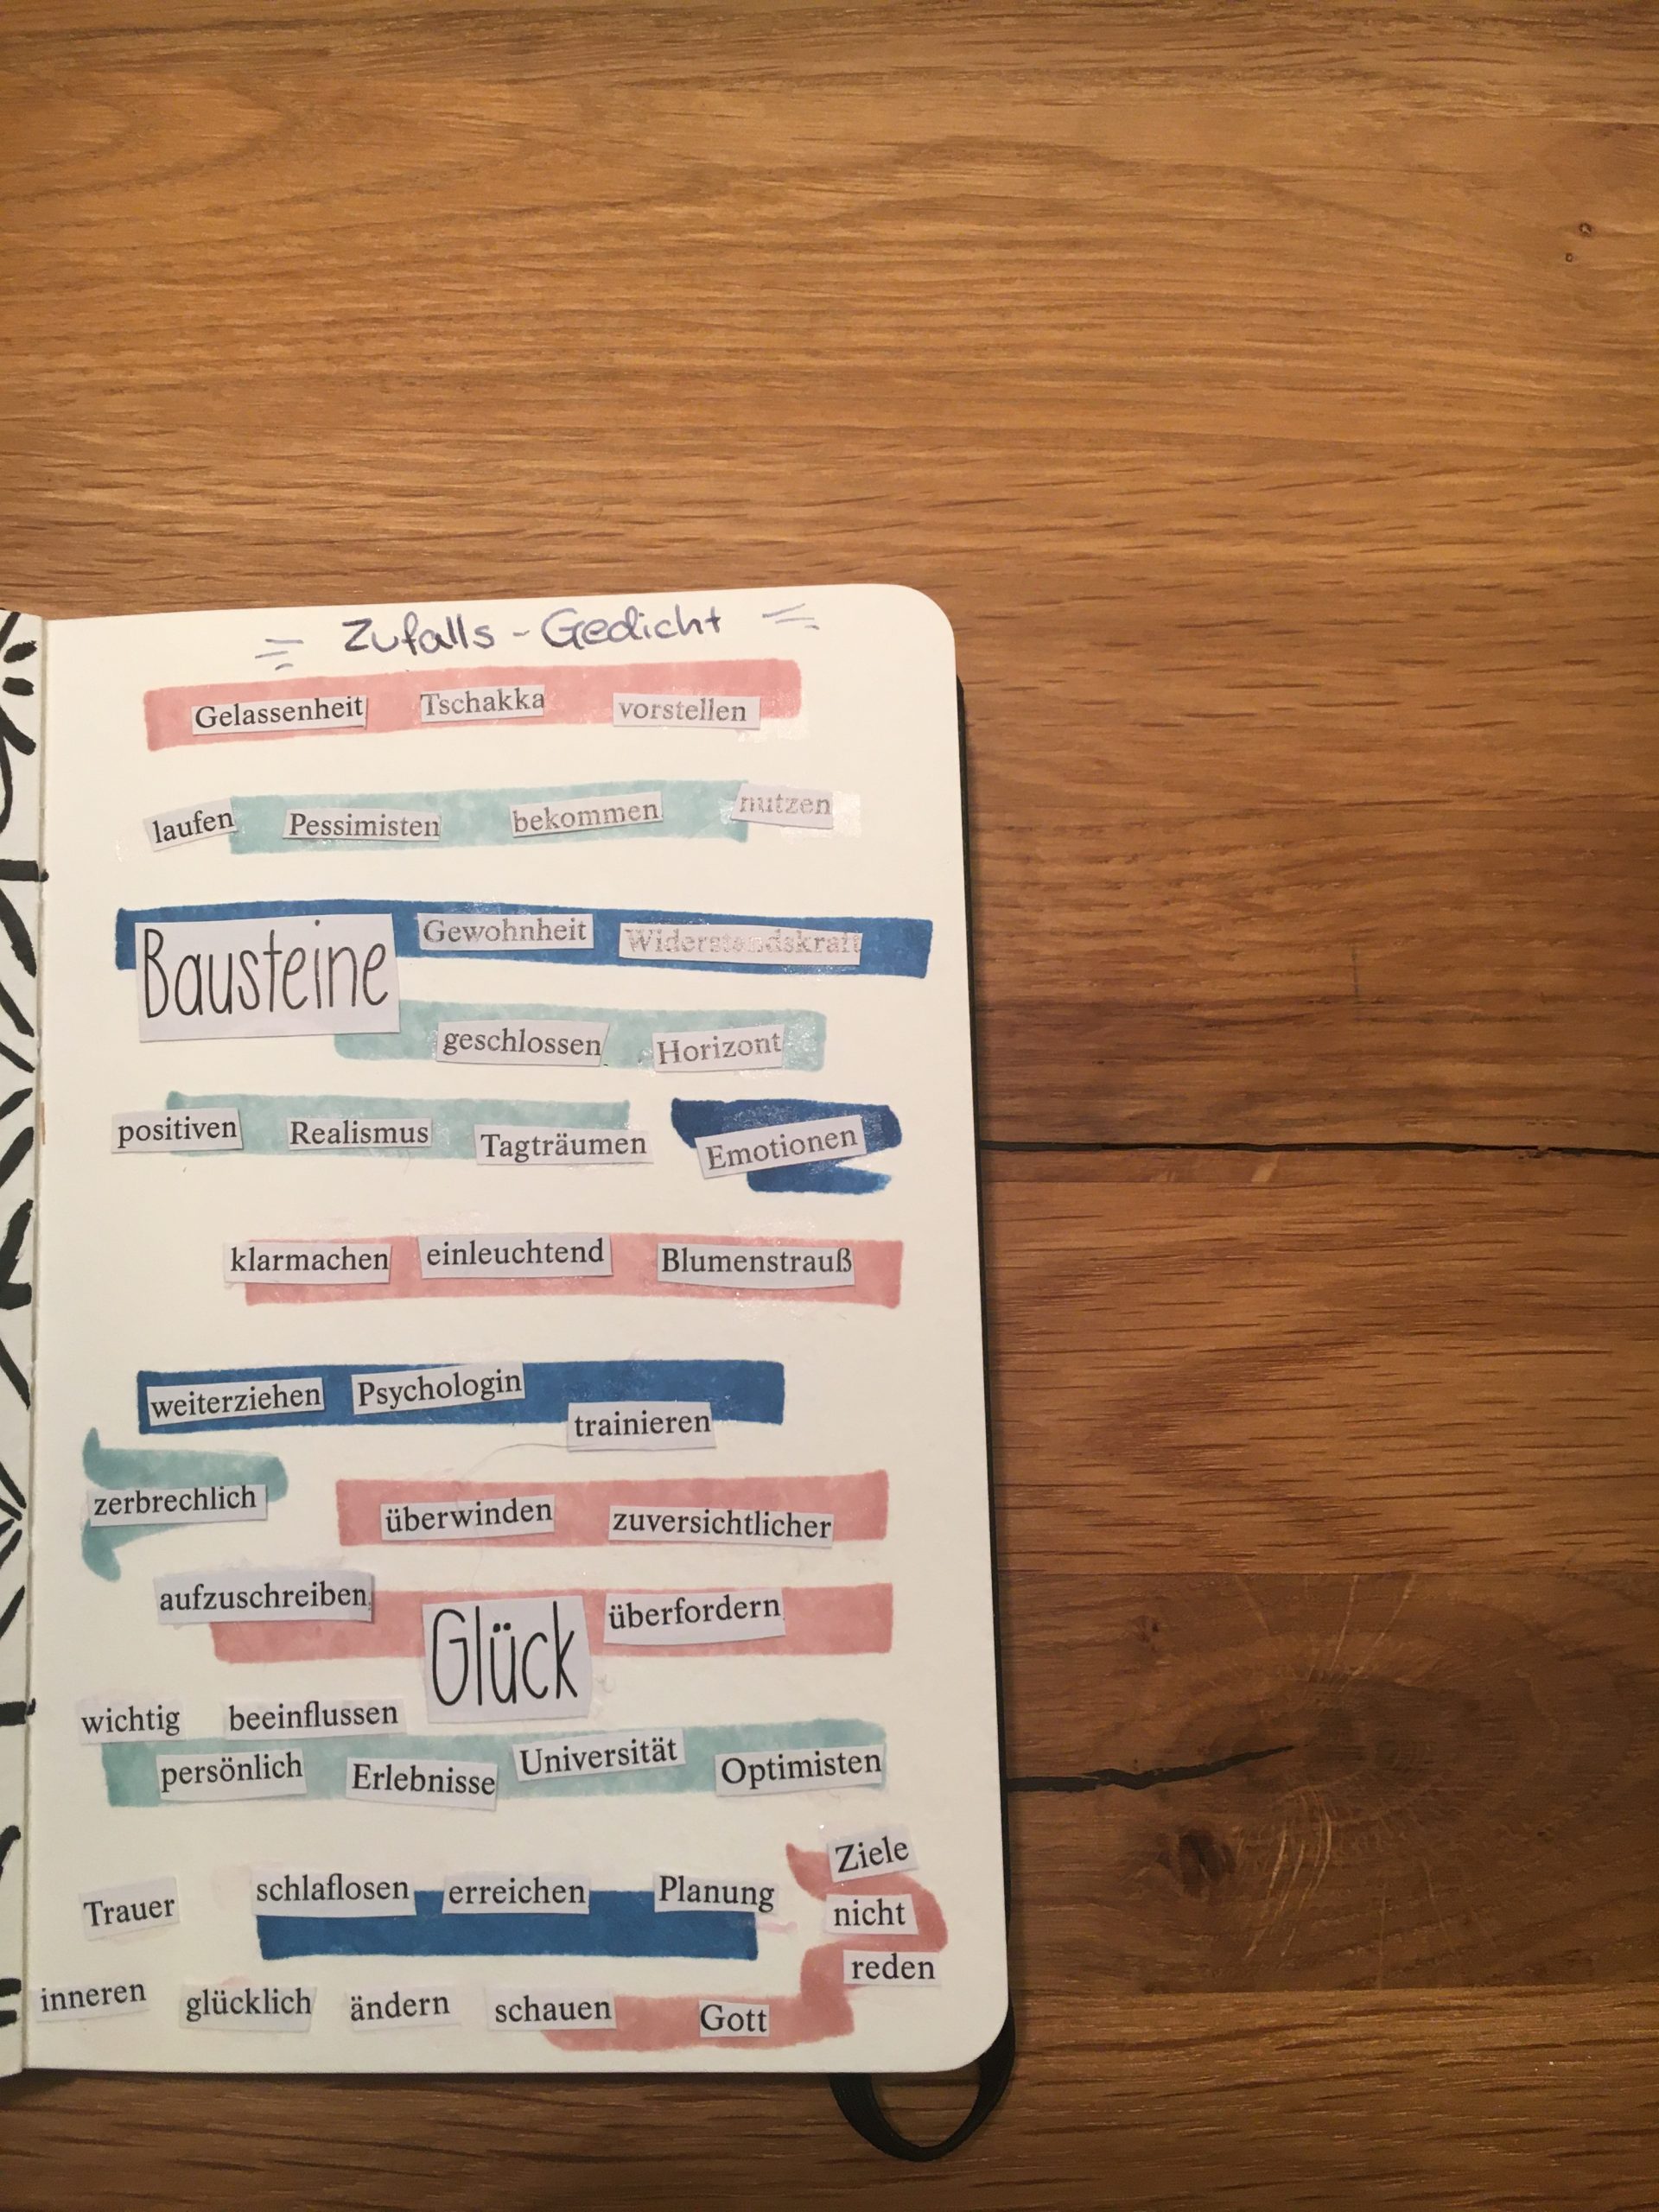 Zufalls - Gedicht
Gelassenheit Tschakka vorstellen
laufen Pessimisten bekommen nutzen
Bausteine Gewohnheit Widerstandskraft
geschlossen Horizont
positiven Realismus Tagträumen Emotionen
klarmachen einleuchtend Blumenstrauß
weiterziehen Psychologin trainieren
zerbrechlich überwinden zuversichtlicher
aufzuschreiben Glück überfordern
wichtig beeinflussen
persönlich Erlebnisse Universität Optimisten
Ziele
Trauer schlaflosen erreichen Planung nicht
reden
inneren glücklich ändern schauen Gott